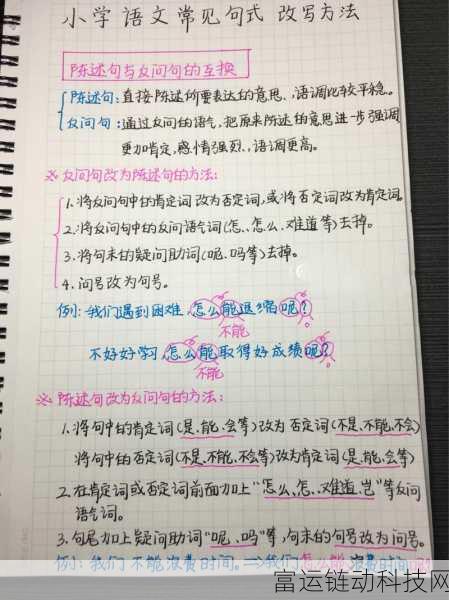 小学语文常见句式 改写方法
陈述句与反问句的互换
陈述句:直接陈述所要表达的意思,语调比较平稳。
反问句:通过反问的语气,把原来陈述的意思进一步强调
更加肯定,感情强烈,语调更高。
※反问句改为陈述句的方法:
1.将反问句中的肯定词改为否定词,或将否定词改为肯定词
2.将反问句中的反问语气词(怎、怎么、难道等)去掉。
3.将句末的疑问助词(呢、吗等)去掉。
4.问号改为句号。
例:我们遇到困难,怎么能退缩呢?
不能
不好好学习,怎么能取得好成绩呢?
不能
※陈述句改为反问句的方法:
1.将句中的肯定词(是、能、会等)改为否定词(不是、不能、不会)
将句中的否定词(不是、不能、不会等)改为肯定词(是、能、会等)
2.在肯定词或否定词前面加上"怎么、怎、难道、岂"等反问
语气词。
3.句尾加上疑问助词"呢、吗"等,句末的句号改为问号。
例:我们不能浪费时间。⇒我们怎么能浪费时间呢?
富运链动科技网